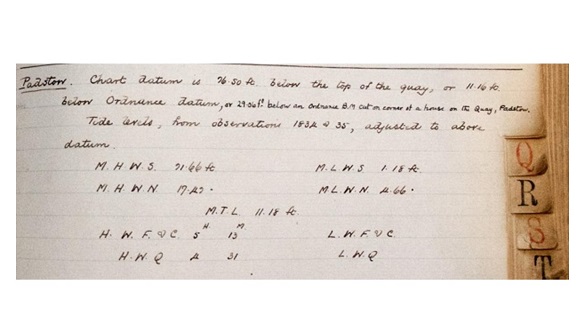 Padstow. Chart datum is 26.50 ft. below the top of the quay, or 11.16 ft.
below Ordnance datum, or 29.06 ft. below an Ordnance B.M. cut on corner of a house on the Quay, Padstow.
Tide levels, from observations 1834 & 35, adjusted to above
datum.
M.H.W.S. 21.66 ft M.L.W.S. 1.18 ft.
M.H.W.N. M.L.W.N. 4.66
M.T.L. 11.18 ft.
H.W.F. & C. 5 H 13 M L.W.F. & C.
H.W.Q 31 L.W.Q
Q
R
S
T